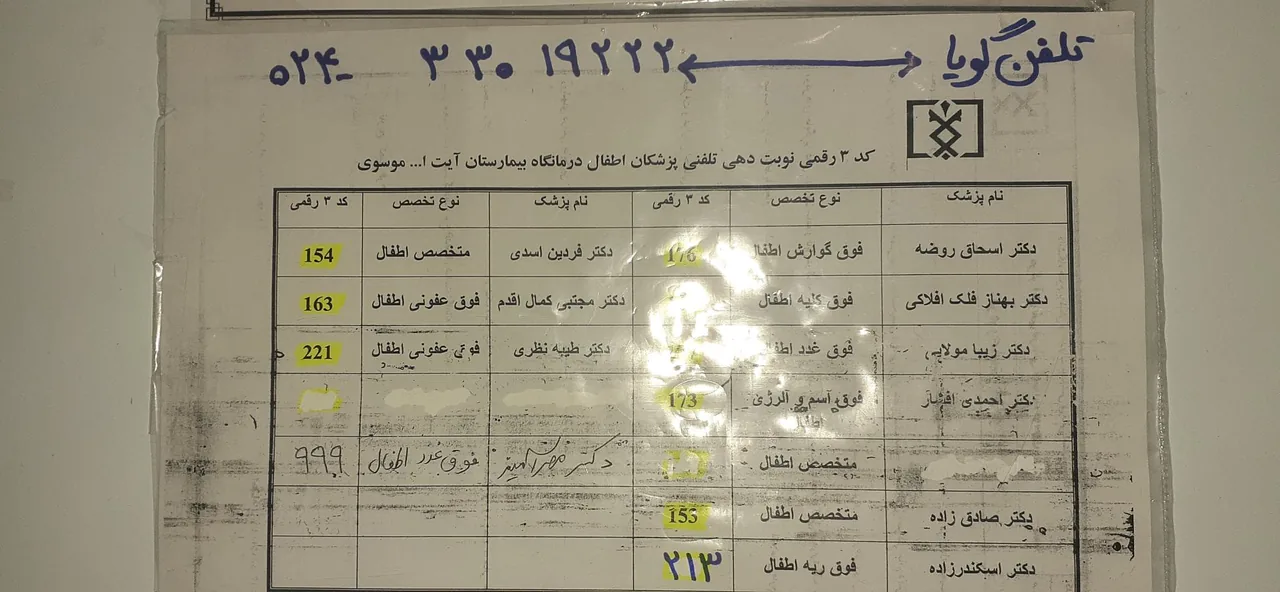 تلفن گویا ۰۲۴- ۳۳۰ ۱۹۲۲۲
کد ۳ رقمی نوبت دهی تلفنی پزشکان اطفال درمانگاه بیمارستان آیت ا... موسوی
نام پزشک نوع تخصص کد ۳ رقمی نام پزشک نوع تخصص کد ۳ رقمی
دکتر اسحاق روضه فوق گوارش اطفال 176 دکتر فردین اسدی متخصص اطفال 154
دکتر بهناز فلک افلاکی فوق کلیه اطفال دکتر مجتبی کمال اقدم فوق عفونی اطفال 163
دکتر زیبا مولایی فوق غدد اطفال دکتر طیبه نظری فوق عفونی اطفال 221
دکتر احمدی افشار فوق آسم و آلرژی 173
اطفال
متخصص اطفال دکتر فوق غدد اطفال ۹۹۹
دکتر صادق زاده متخصص اطفال 153
دکتر اسکندرزاده فوق ریه اطفال ۲۱۳